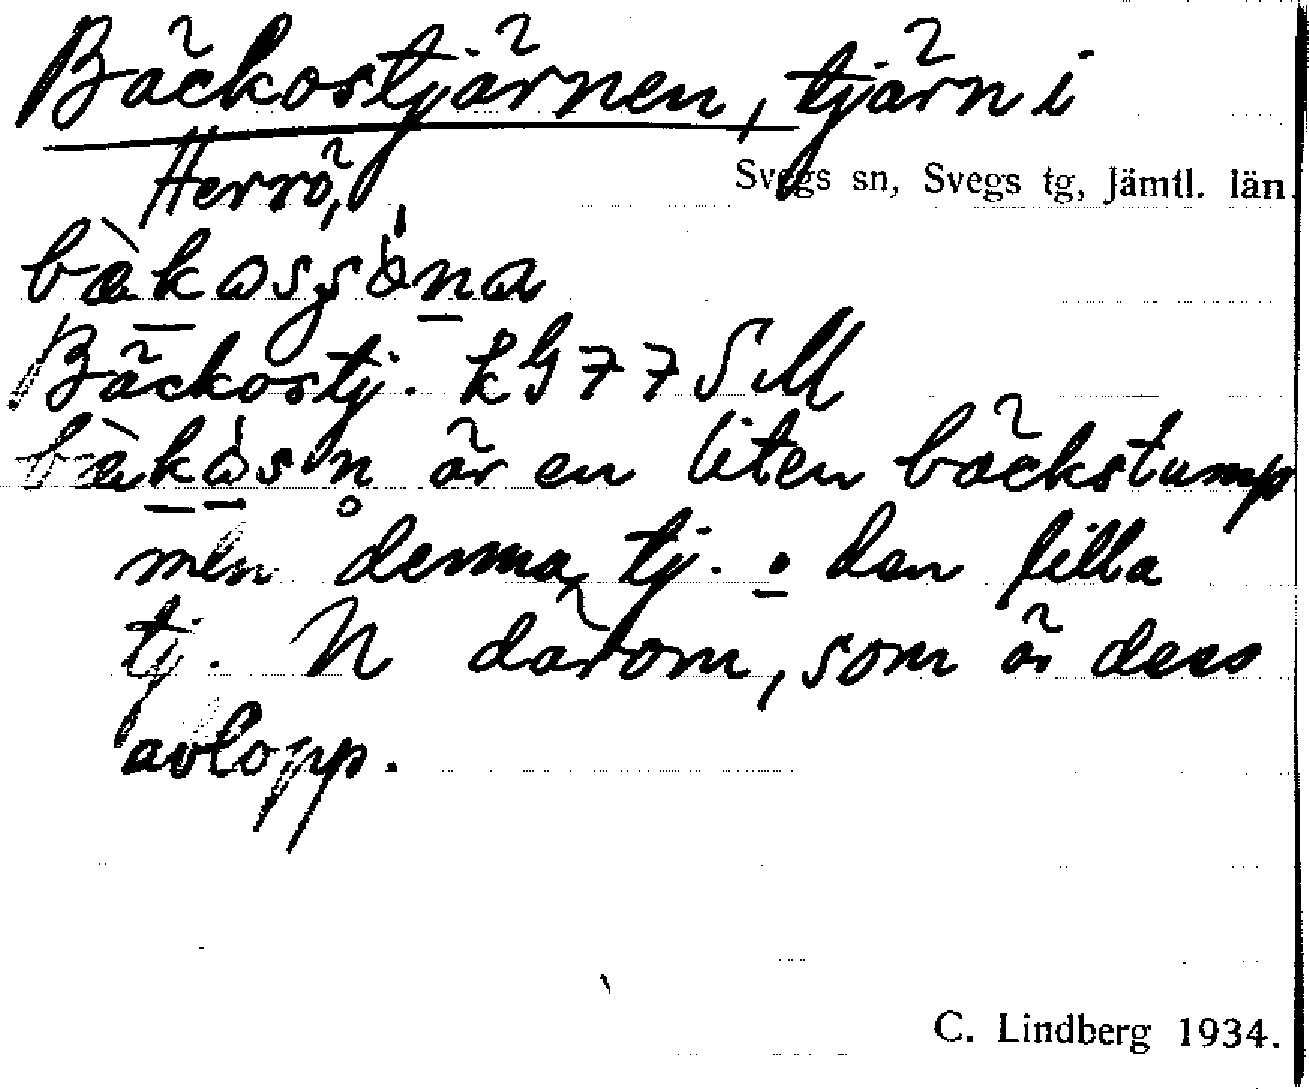 Bäckostjärnen, tjärn i
Herrö,
Svegs sn, Svegs tg, Jämtl. län.
Bäckostj. kG 77 SM
är en liten bäckstump
mln denna tj. o den lilla
tj. N därom, som är dess
avlopp.
C. Lindberg 1934.